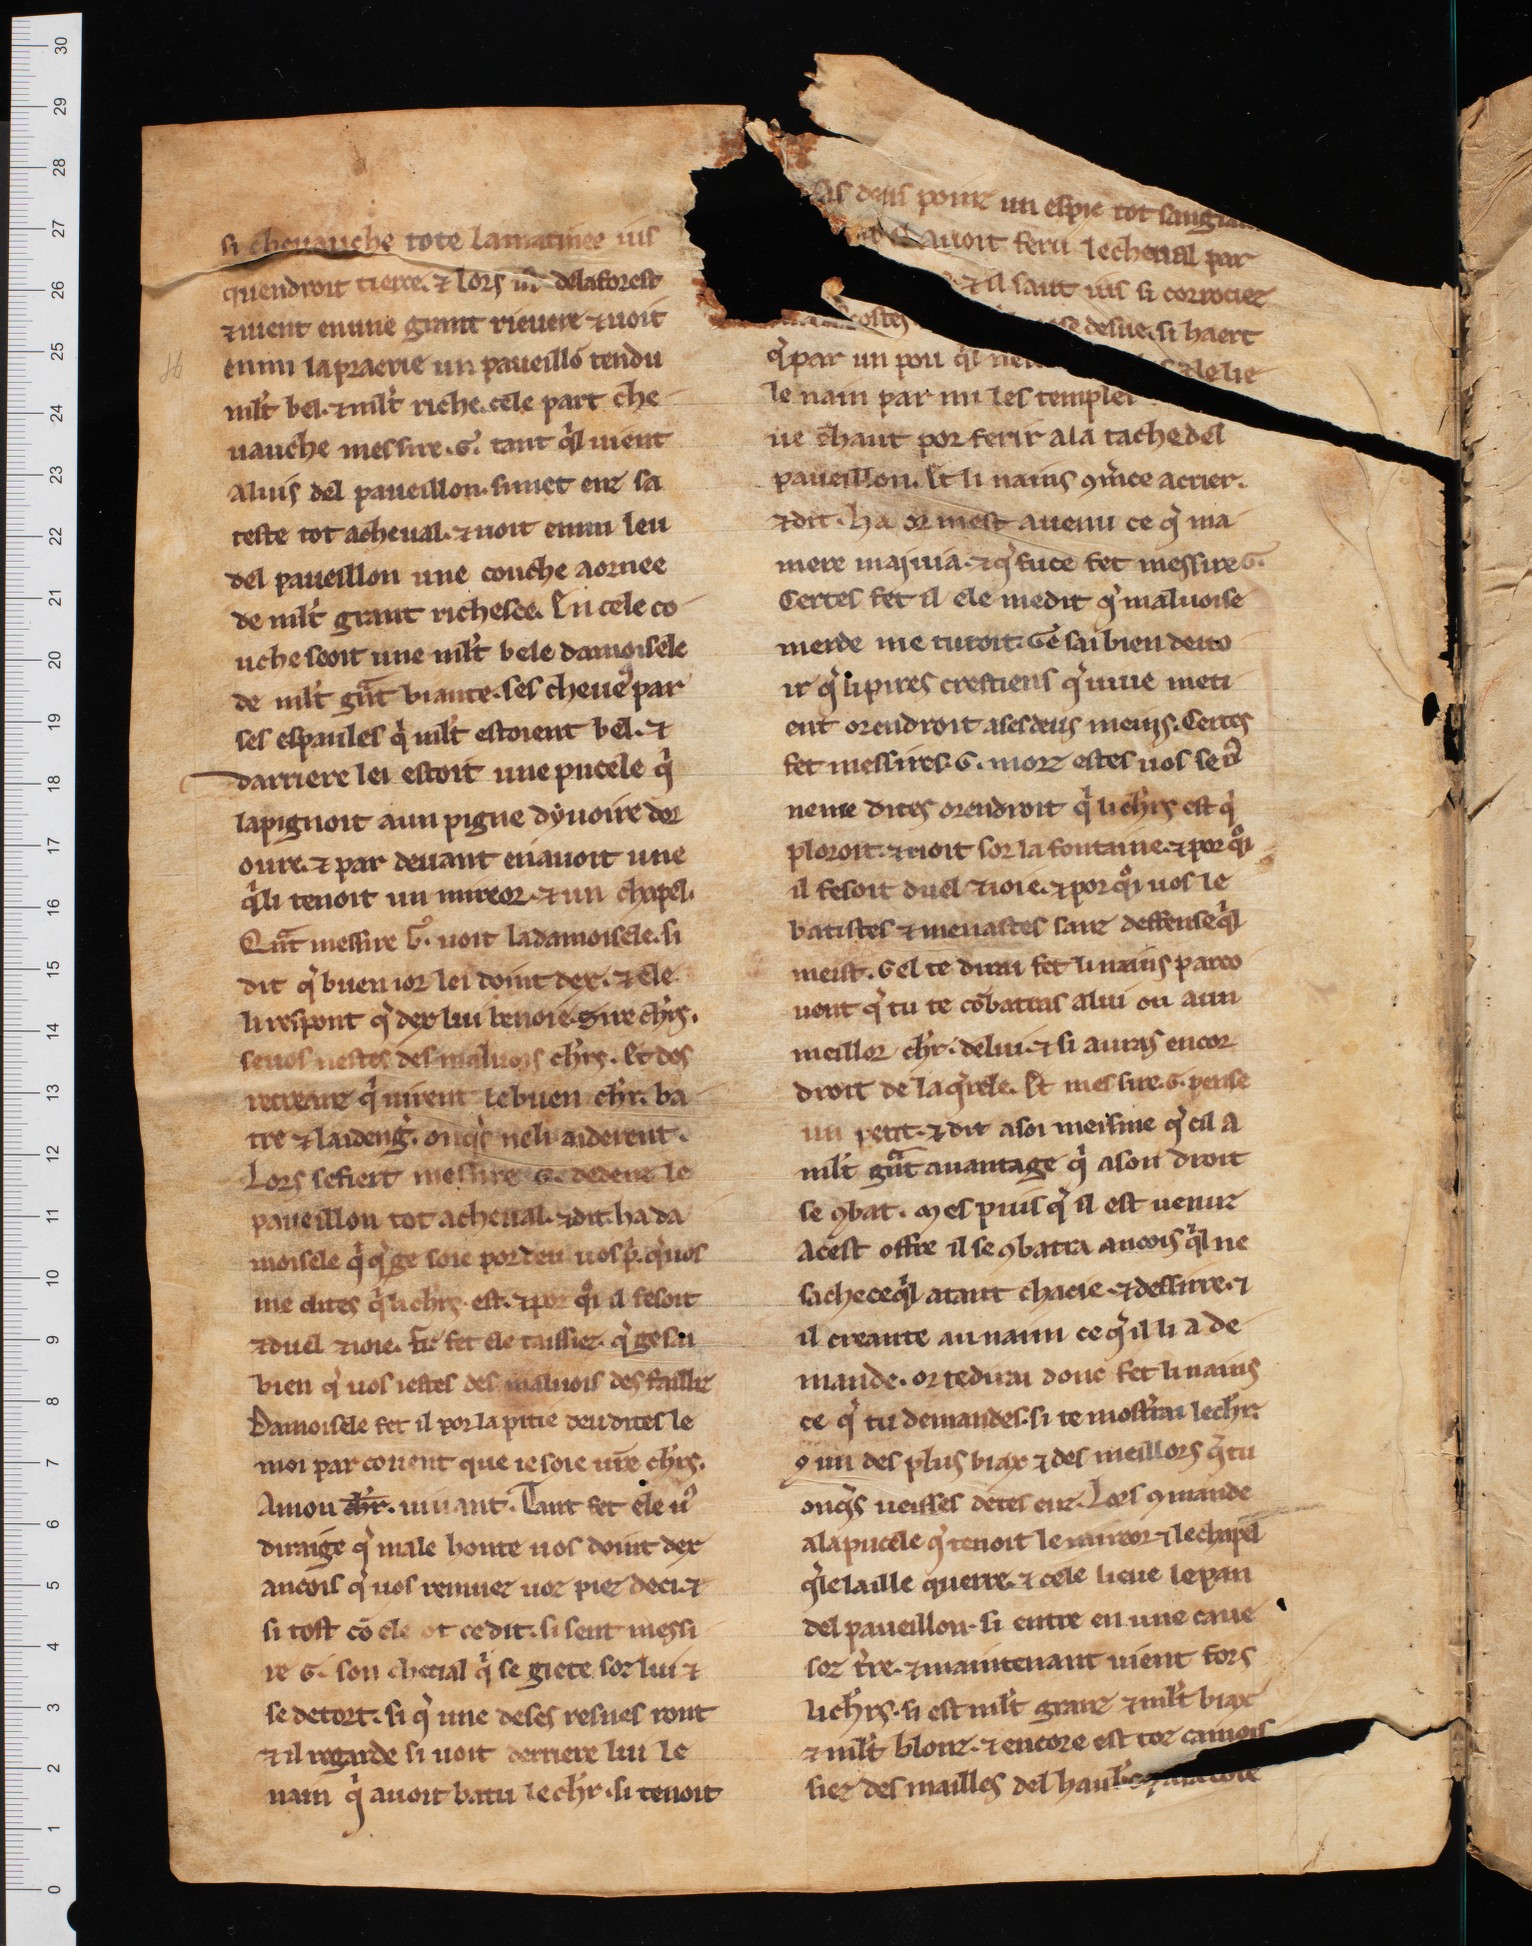 si cheuauche tote lamatinee ius
quendroit tierce. ⁊ lors ist delaforest
⁊uient enune grant riuiere ⁊uoit
enmi lapraerie un paueillõ tendu
ml̃t bel. ⁊ml̃t riche. cele part che
uauche messire .G. tant ql̓ uient
aluis del paueillon. simet enz sa
teste tot acheual. ⁊uoit enmi leu
del paueillon une couche aornee
de ml̃t grant richesce. En cele co
uche seoit une ml̃t bele damoisele
de ml̃t gñt biaute. ses cheueꝰ par
ses espaules q̓ ml̃t estoient bel. ⁊
darriere lei estoit une pucele q̓
lapignoit aun pigne dyuoire dor
oure. ⁊ par deuant enauoit une
q̓li tenoit un mireor. ⁊un chapel.
Qñt messire G. uoit ladamoisele. si
dit q̓ buen ior lei doint dex. ⁊ ele
li respont q̓ dex lui benoie. sire chrs̃.
seuos nestes des maluois chrs̃. Et des
recreanz q̓ uirent lebuen chr̃. ba
tre ⁊ laideng̓. onqs̓ neli aiderent.
Lors sefiert messire .G. dedenz le
paueillon tot acheual. ⁊dit. ha da
moisele q̓ q̓ ge soie pordeu uos p̓. q̓uos
me dites q̓lichrs̃. est. ⁊por qͦi il fesoit
⁊duel ⁊ioie. fet ele taissiez. q̓ gesai
bien q̓ uos iestes des maluois desfailliz
Damoisele fet il por la pitie deu dites le
moi par couent que ie soie ur̃e chrs̃.
Amon chr̃. uiuant. Tant fet ele uꝰ
diraige q̓ male honte uos doint dex
ancois q̓ uos remuez uoz piez deci. ⁊
si tost cõ ele ot ce dit. si sent messi
re G. son cheual q̓ se giete soz lui ⁊
se detort. si q̓ une deses resnes ront
⁊il regarde si uoit derriere lui le
nain q̓ auoit batu le chr̃. si tenoit
deus poinz un espie tot sanglant
auoit feru lecheual par
⁊ il saut ius si corrociez
costes desue. si haert
q̓ par un pou ql̓ ⁊ le lie
le nain par mi les temples
ue chaut por ferir ala tache del
paueillon. Et li nains ꝯmĩce acrier.
⁊dit. ha or mest auenu ce q̓ ma
mere maiuia. ⁊ q̓ fuce fet messire G.
Certes fet il ele medit q̓ maluoise
merde me turoit. Ge sai bien deuo
ir q̓ lipires crestiens q̓ uiue meti
ent orendroit asesdeus meins. Certes
fet messires G. morz estes uos se uꝰ
neme dites orendroit q̓ lichrs̃ est q̓
ploroit. ⁊rioit sor la fontaine. ⁊ por qͦi
il fesoit duel ⁊ioie. ⁊porqͦi uos le
batistes ⁊ menastes sanz deffense ql̓
meist. Gel te dirai fet li nains parco
uent q̓ tu te cõbatras alui ou aun
meillor chr̃. delui. ⁊ si auras encor
droit de laq̓rele. Et messire .G. pense
un petit. ⁊ dit asoi meisme q̓ cil a
ml̃t gñt auantage q̓ ason droit
se ꝯbat. Mes puis q̓ il est uenuz
Acest offre il se ꝯbatra ancois ql̓ ne
sache ce ql̓ atant chacie. ⁊dessirre. ⁊
il creante aunain ce q̓ il li a de
mande. or te dirai donc fet li nains
ce q̓ tu demandes. si te mostr̓rai lechr̃.
ꝯ un des plus biax ⁊ des meillors q̓ tu
onqs̓ ueisses detes euz. Lors ꝯmande
ala pucele q̓ tenoit le mireor ⁊ le chapel
q̓le laille querre. ⁊ cele lieue le pan
del paueillon. si entre en une caue
soz tr̃re. ⁊maintenant uient fors
lichrs̃. si est ml̃t granz ⁊ ml̃t biax
⁊ ml̃t blonz. ⁊ encore est toz camois
siez des mailles del haub̓c